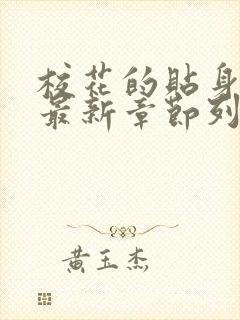 校花的貼身
最新章節列
黃玉杰